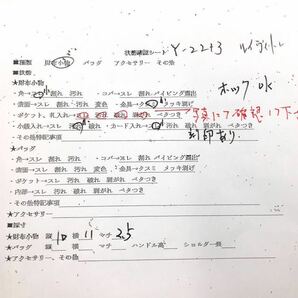 状態確認シート Y-2243 ルイヴィトン
■種類 財布小物 バッグ アクセサリー その他
■状態
★財布小物
・角→スレ 割れ 汚れ ・コバ→スレ 割れ パイピング露出
・表面→スレ 剥がれ 汚れ 変色 ・金具→クスミ メッキ剥げ ホックok
・ポケット、札入れ→ 汚れ 破れ 剥がれ ベタつき 写真にて確認下さ
・小銭入れ→スレ 汚れ 破れ ・カード入れ→ 汚れ 破れ 刻印あり
・その他特記事項
★バッグ
・角→スレ 割れ 汚れ ・コバ→スレ 割れ パイピング露出
・表面→スレ 剥がれ 汚れ 変色 ・金具→クスミ メッキ剥げ
・ポケット→スレ 汚れ 破れ 剥がれ ベタつき
・内部→スレ 汚れ 破れ 剥がれ ベタつき
・その他特記事項
★アクセサリー
■採寸
★財布小物 縦 10 横 11 マチ 2.5
★バッグ 縦 横 マチ ハンドル高 ショルダー長
★アクセサリー、その他